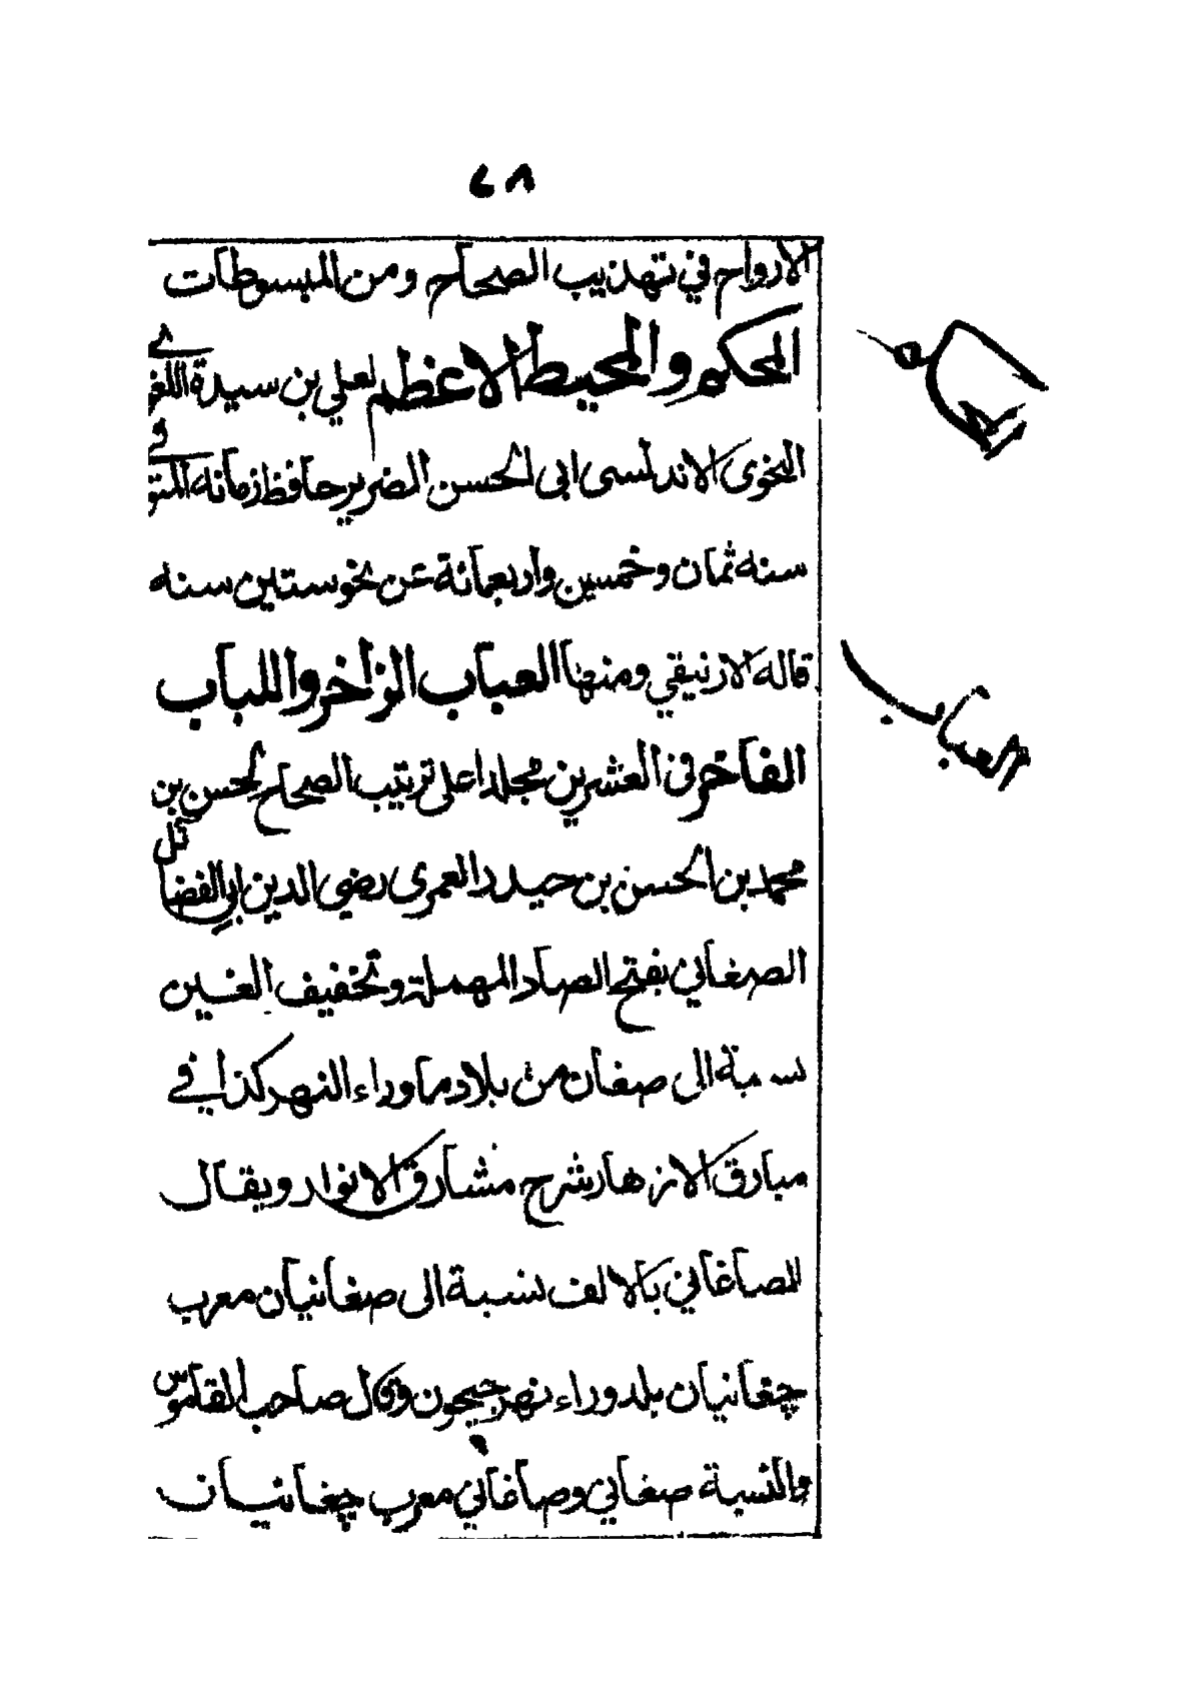 ٤٨
الارواح في تهذيب الصحاح ومن المبسوطات
المحكم والمحيط الاعظم لعلي بن سيدة اللغوي
المحكم
النحوى الاندلسى ابى الحسن الضرير حافظ زمانه المتوفى
سنه ثمان وخمسين واربعمائة عن نحو ستين سنه
قاله الازنيقي ومنها العباب الزاخر واللباب
العباب
الفاخر في العشرين مجلدا على ترتيب الصحاح لحسن بن
محمد بن الحسن بن حيدر العمرى رضي الدين ابي الفضائل
الصغاني بفتح الصاد المهملة وتخفيف الغين
نسبة الى صغان من بلاد ما وراء النهر كذا في
مبارق الازهار شرح مشارق الانوار ويقال
الصاغاني بالالف نسبة الى صغانيان معرب
چغانيان بلد وراء نهر جيحون وقال صاحب القاموس
والنسبة صغاني وصاغاني معرب چغانيان